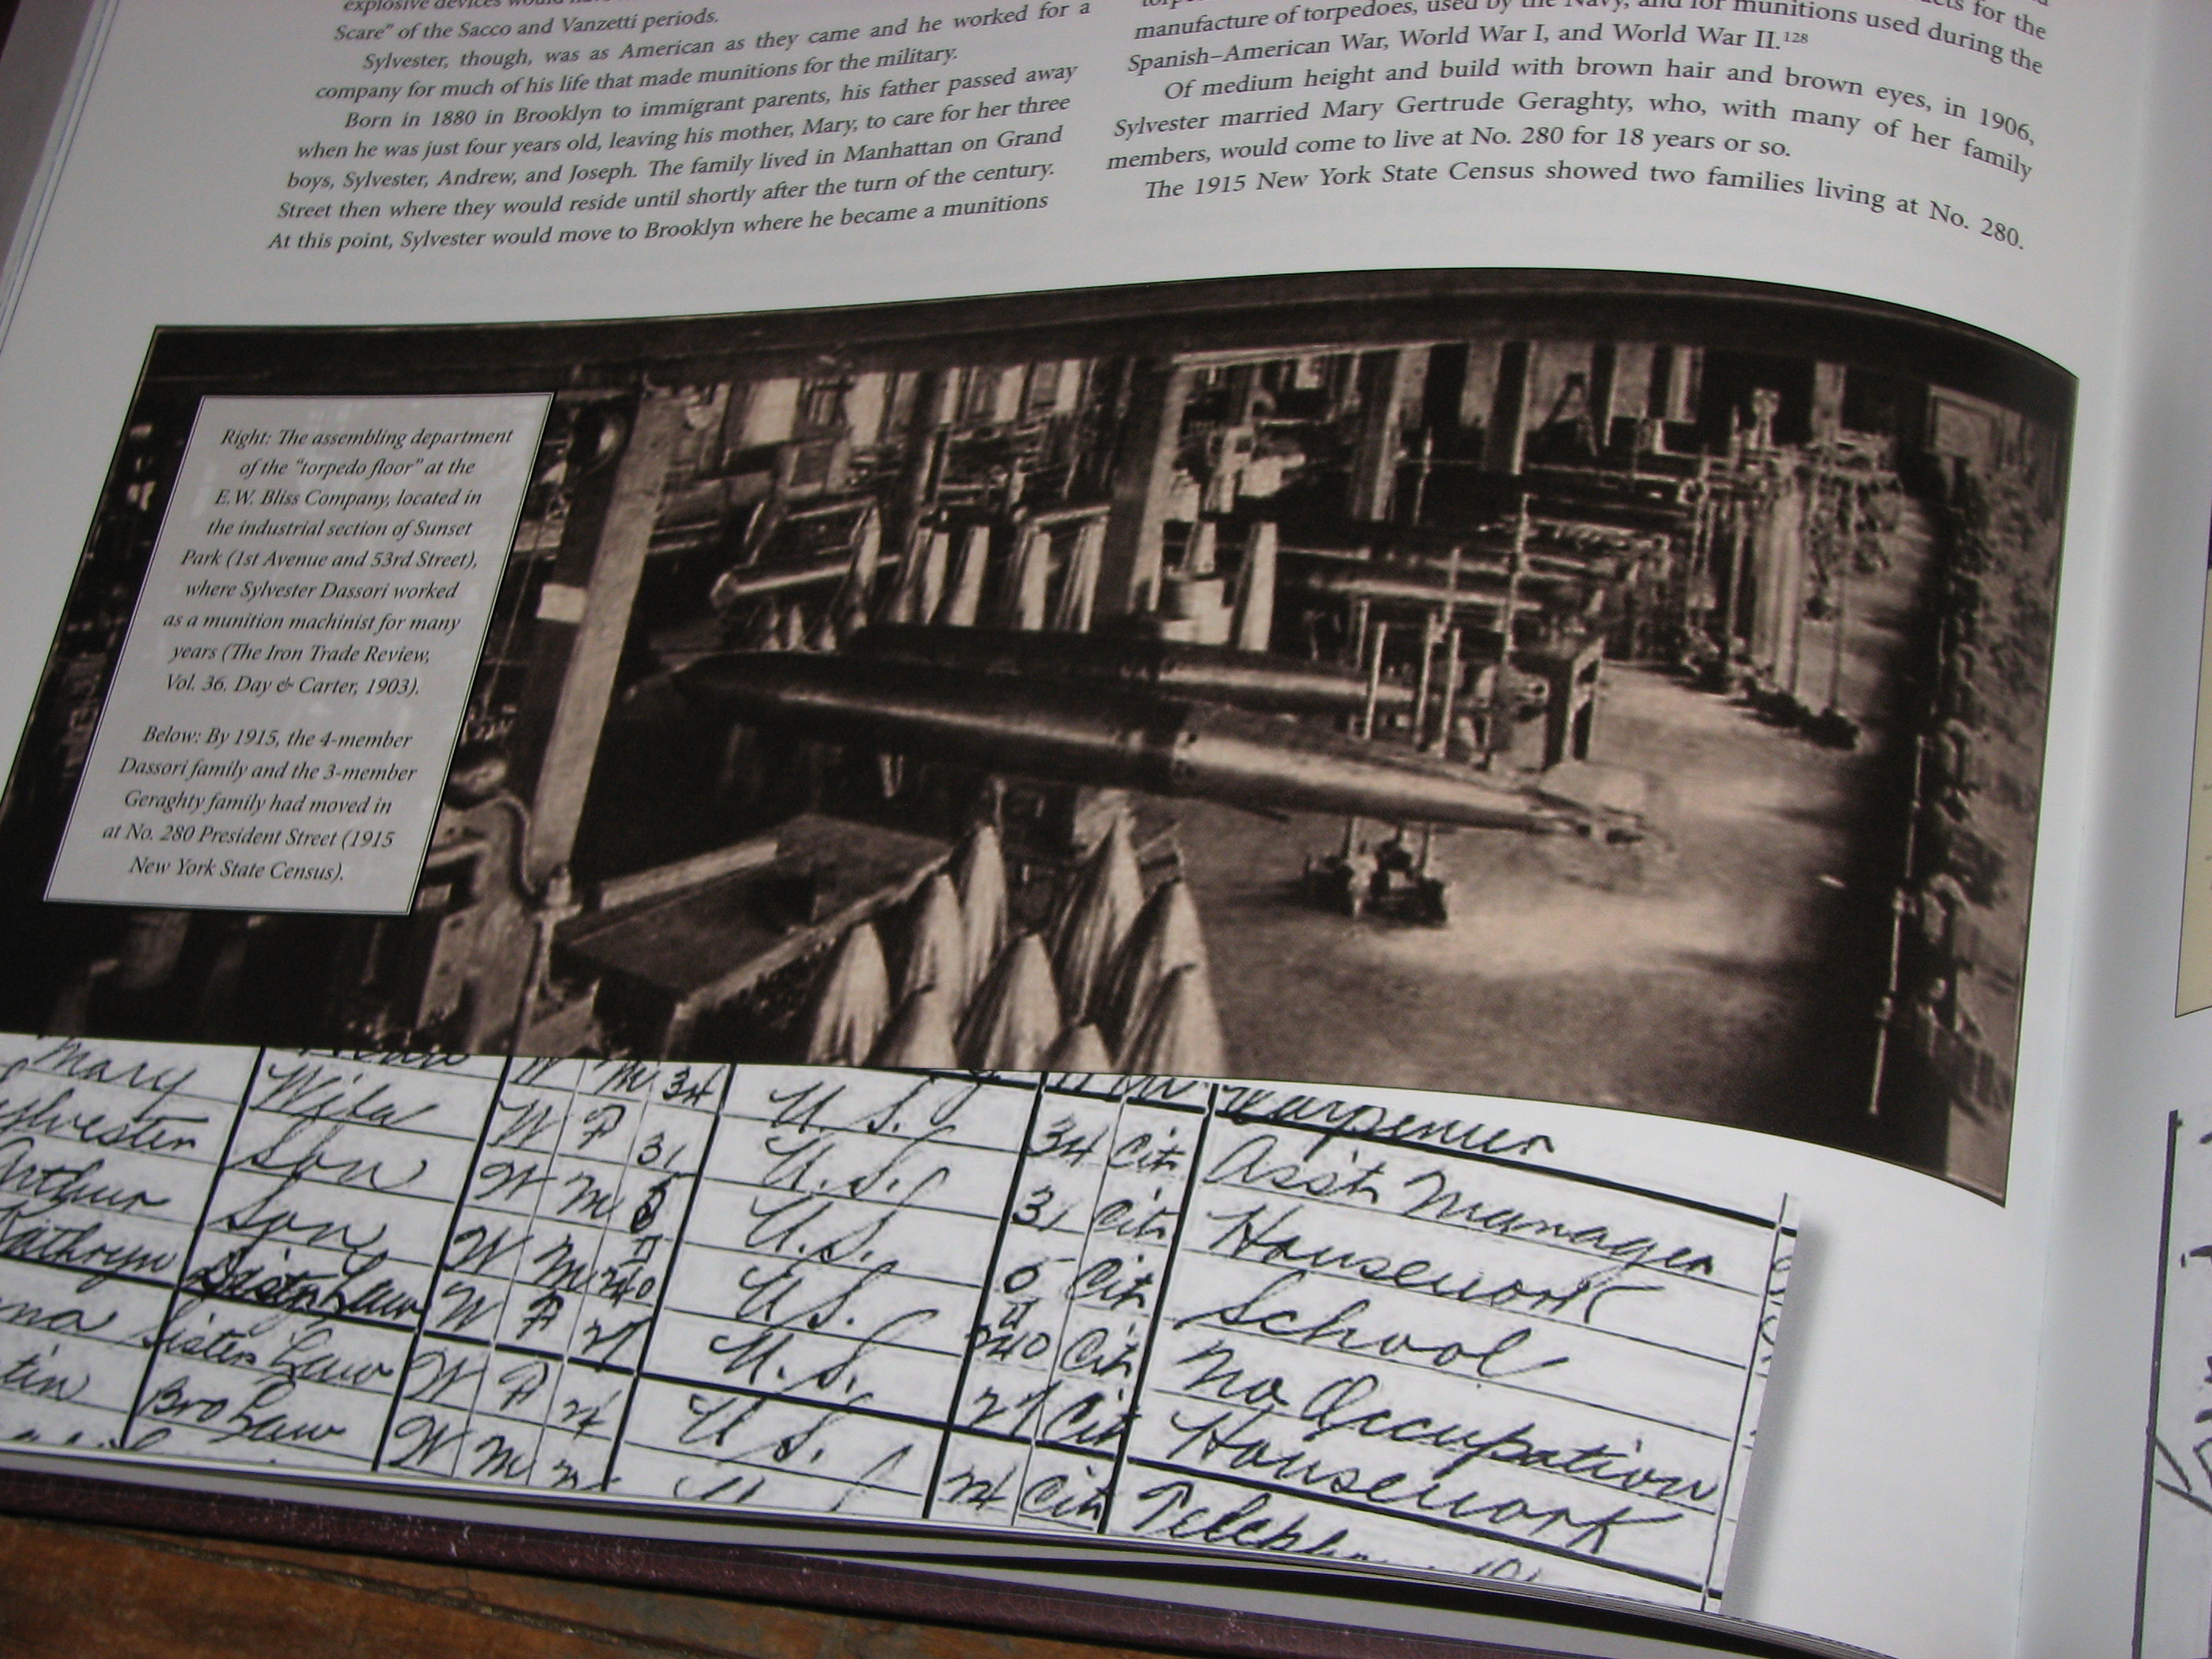 explosive devices would
Scare" of the Sacco and Vanzetti periods.
Sylvester, though, was as American as they came and he worked for a
company for much of his life that made munitions for the military.
Born in 1880 in Brooklyn to immigrant parents, his father passed away
when he was just four years old, leaving his mother, Mary, to care for her three
boys, Sylvester, Andrew, and Joseph. The family lived in Manhattan on Grand
Street then where they would reside until shortly after the turn of the century.
At this point, Sylvester would move to Brooklyn where he became a munitions
for the
manufacture of torpedoes, used by the Navy, and for munitions used during the
Spanish–American War, World War I, and World War II.128
Of medium height and build with brown hair and brown eyes, in 1906,
Sylvester married Mary Gertrude Geraghty, who, with many of her family
members, would come to live at No. 280 for 18 years or so.
The 1915 New York State Census showed two families living at No. 280.
Right: The assembling department
of the "torpedo floor" at the
E.W. Bliss Company, located in
the industrial section of Sunset
Park (1st Avenue and 53rd Street),
where Sylvester Dassori worked
as a munition machinist for many
years (The Iron Trade Review,
Vol. 36. Day & Carter, 1903).
Below: By 1915, the 4-member
Dassori family and the 3-member
Geraghty family had moved in
at No. 280 President Street (1915
New York State Census).
W M 34 Carpenter
Mary Wife W F 31 U.S. 34 Cit Asst Manager
Sylvester Son W M 5 U.S. 31 Cit Housework
Arthur Son W M U.S. 5 Cit School
Kathryn Sister Law W F 27 U.S. Cit No Occupation
Sister Law W F 24 U.S. 27 Cit Housework
Bro Law W M U.S. 24 Cit